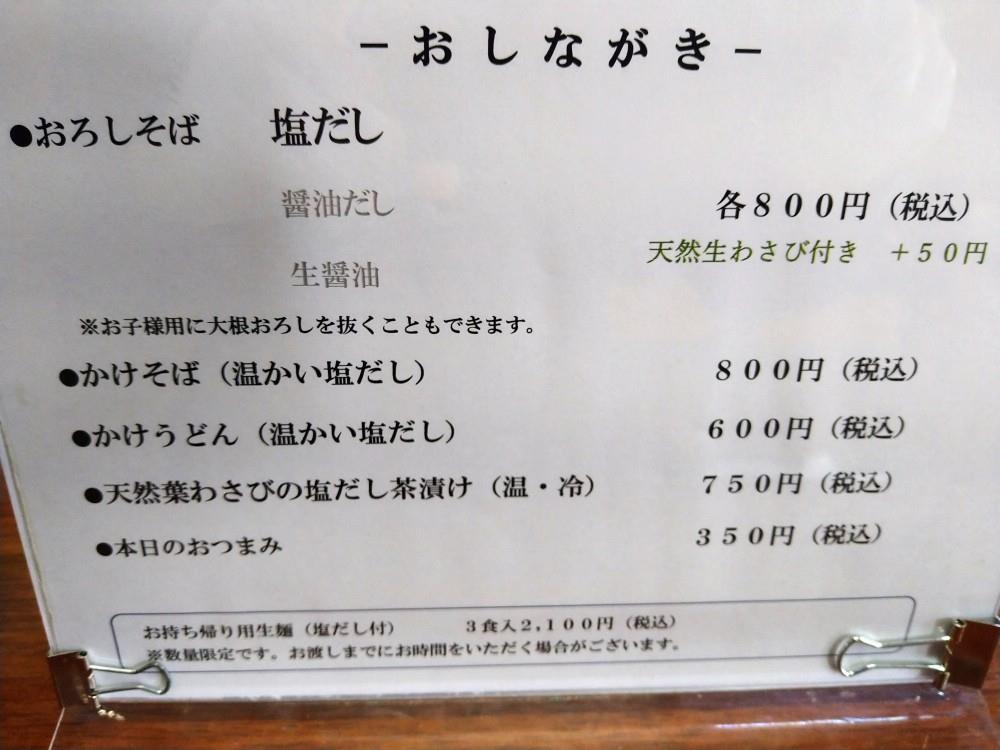 －おしながき－
●おろしそば　塩だし
醤油だし　各８００円（税込）
天然生わさび付き　＋５０円
生醤油
※お子様用に大根おろしを抜くこともできます。
●かけそば（温かい塩だし）　８００円（税込）
●かけうどん（温かい塩だし）　６００円（税込）
●天然葉わさびの塩だし茶漬け（温・冷）　７５０円（税込）
●本日のおつまみ　３５０円（税込）
お持ち帰り用生麺（塩だし付）　３食入２,１００円（税込）
※数量限定です。お渡しまでにお時間をいただく場合がございます。